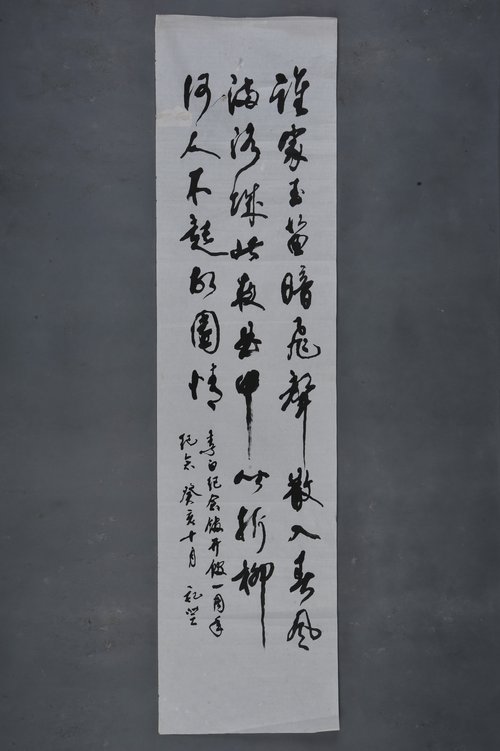 誰家玉笛暗飛聲散入春風
滿洛城此夜曲中聞折柳
何人不起故園情
李白纪念馆开馆一周年
纪念 癸亥十月